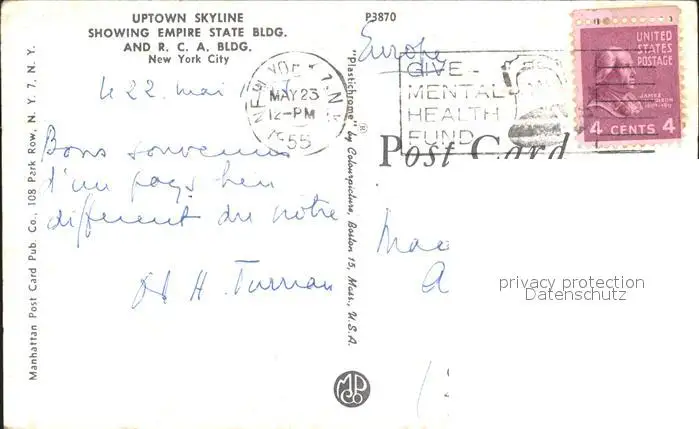 UPTOWN SKYLINE
SHOWING EMPIRE STATE BLDG.
AND R. C. A. BLDG.
New York City
P3870
Manhattan Post Card Pub. Co., 108 Park Row, N. Y. 7, N. Y.
le 22 mai
Bons souvenirs
d'un pays bien
différent du nôtre
H. Turrian
"Plastichrome" ® by Colourpicture, Boston 15, Mass., U.S.A.
Europe
MAY 23
12-PM
1955
GIVE -
MENTAL
HEALTH
FUND
UNITED
STATES
POSTAGE
JAMES
MADISON
4 CENTS 4
Post Card
privacy protection
Datenschutz